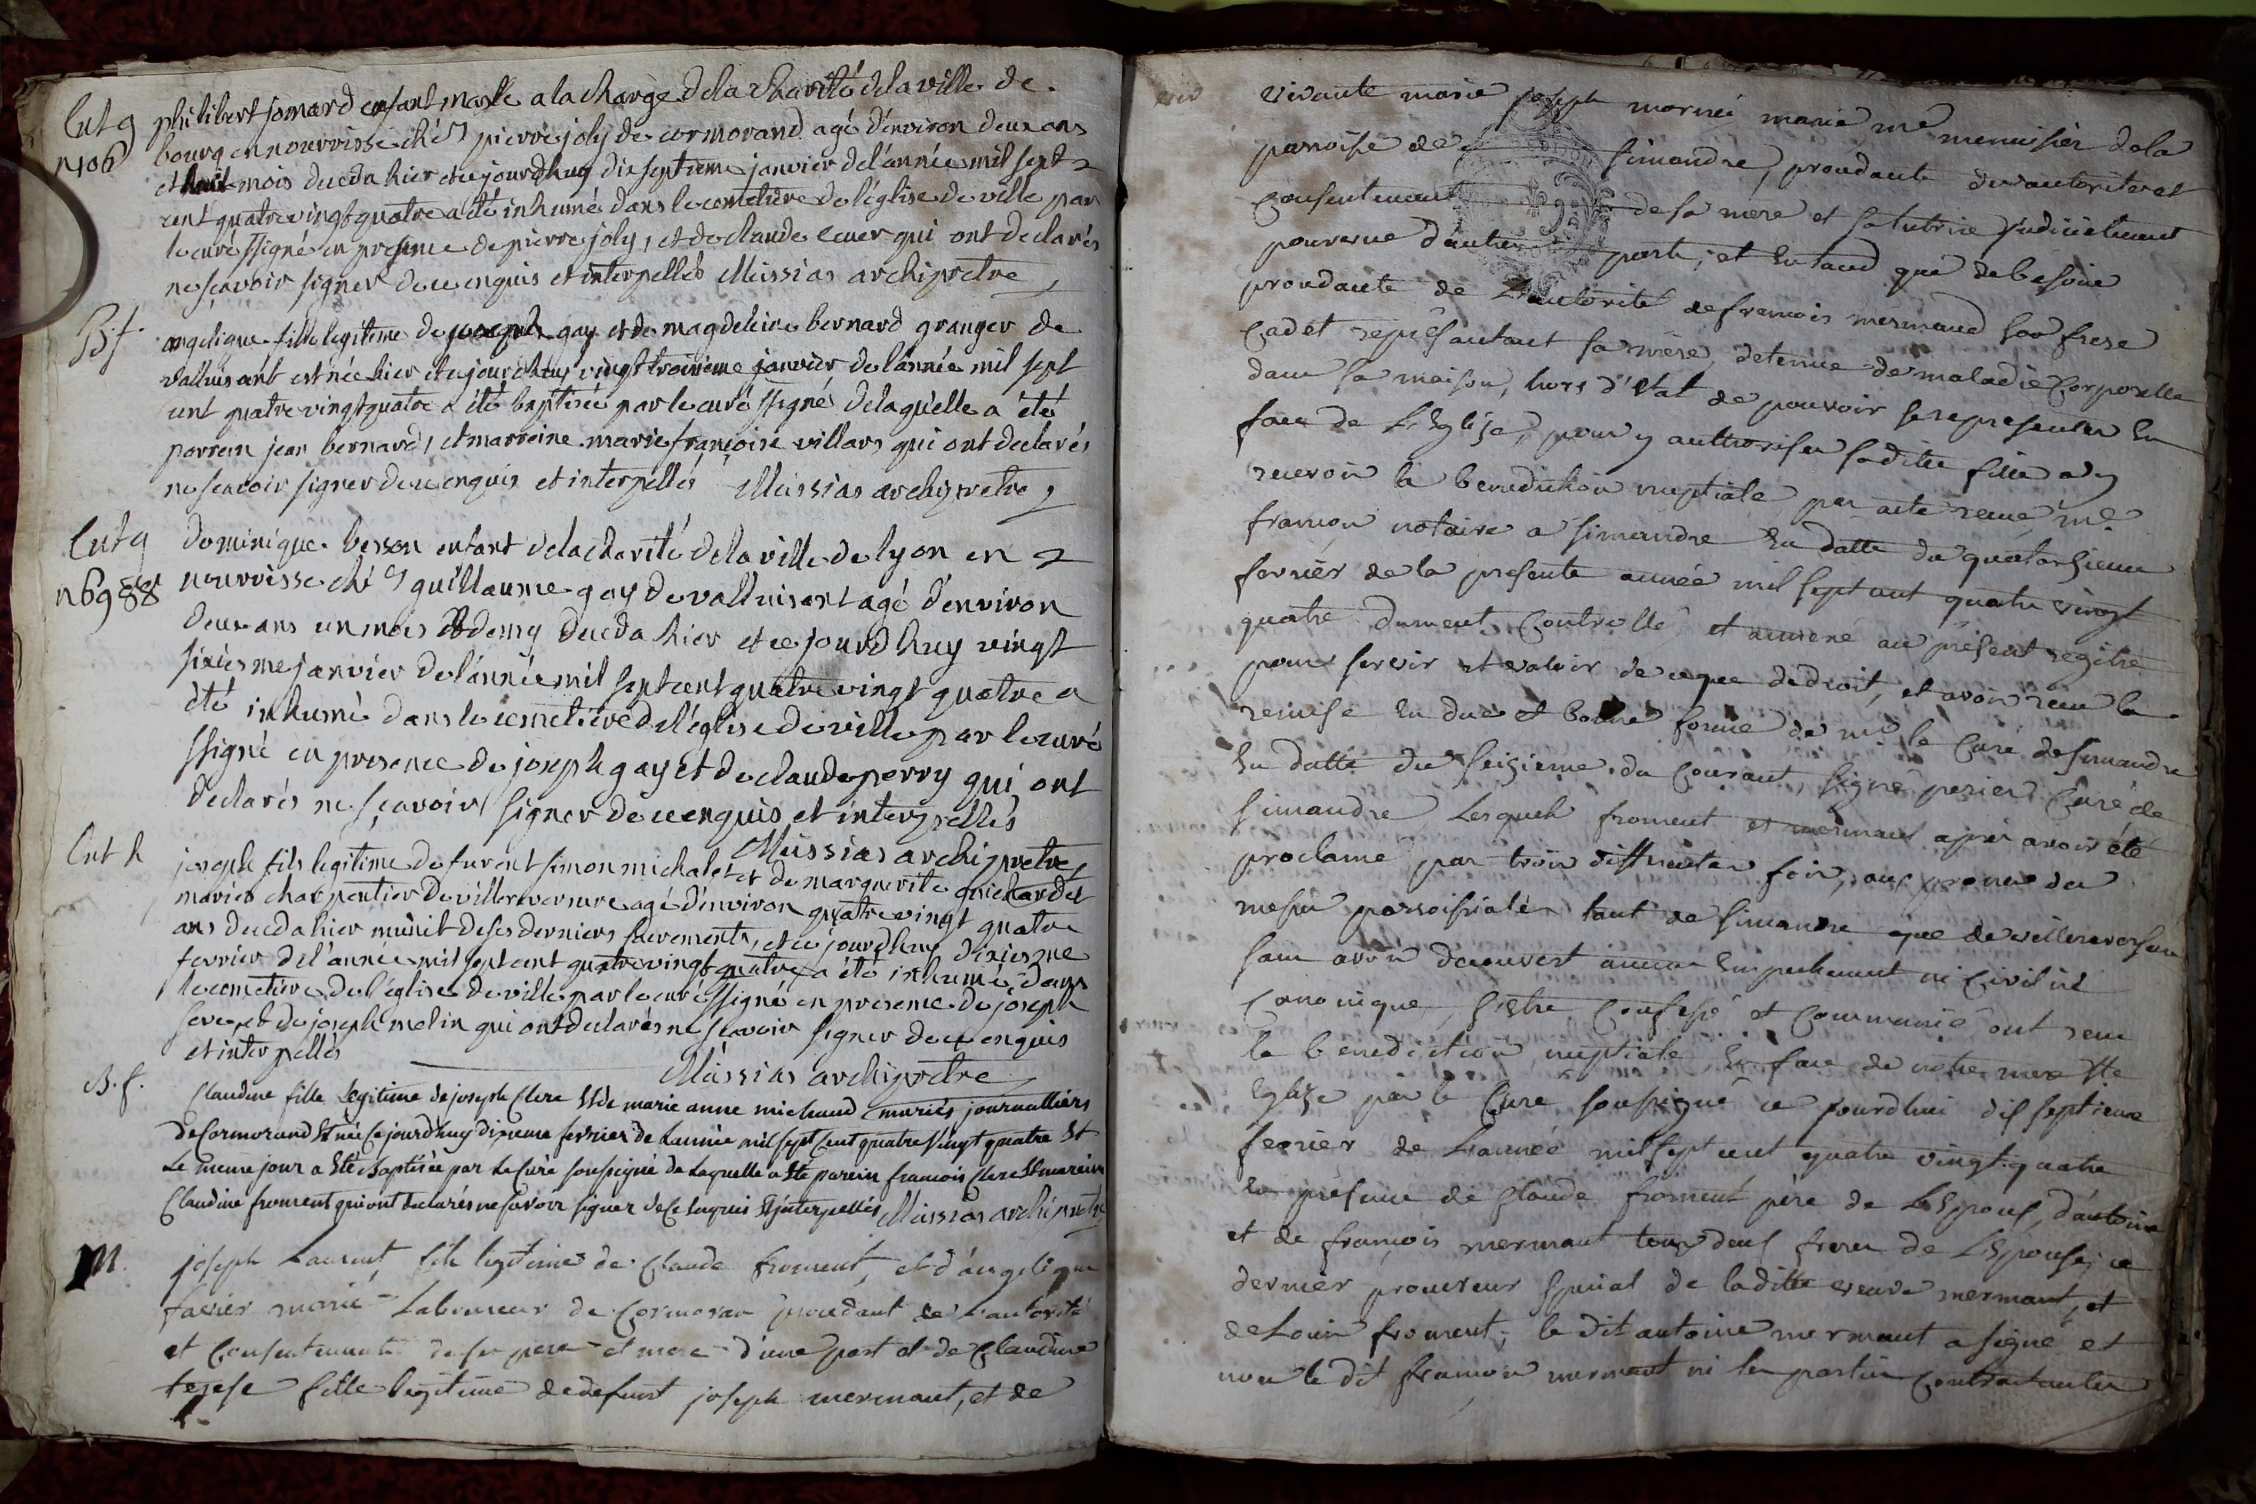 Ent g
n 106
philibert jomard enfant masle a la charge de la charité de la ville de
bourg en nourrisse ché pierre joly de cormorand agé d'environ deux ans
et huit mois decedа hier et ce jourdhuy dix septieme janvier de l'année mil sept
cent quatre vingt quatre a été inhumé dans le cemetiere de l'église de ville par
le curé ssigné en presence de pierre joly, et de claude cuer qui ont declarés
ne sçavoir signer de ce enquis et interpellés Missias archipretre
B. f.
angelique fille legitime de joseph gay et de magdeleine bernard granger de
valluisant est née hier et ce jourdhuy vingt troisieme janvier de l'année mil sept
cent quatre vingt quatre a été baptisée par le curé ssigné de laquelle a été
parrein jean bernard, et marreine marie françoise villars qui ont declarés
ne scavoir signer de ce enquis et interpellés Missias archipretre
Ent g
n 6988
Dominique besson enfant de la charité de la ville de lyon en
nourrisse ché guillaume gay de valluisant agé d'environ
deux ans un mois et demy deceda hier et ce jourdhuy vingt
sixiesme janvier de l'année mil sept cent quatre vingt quatre a
été inhumé dans le cemetiere de l'église de ville par le curé
ssigné en presence de joseph gay et de claude perry qui ont
declarés ne sçavoir signer de ce enquis et interpellés
Missias archipretre
Ent h
joseph fils legitime de furent simon michalet et de marguerite guichardet
mariés charpentier de villereversure agé d'environ quatre vingt quatre
ans deceda hier munit de ses derniers sacrements, et ce jourdhuy dixiesme
fevrier de l'année mil sept cent quatre vingt quatre a été inhumé dans
le cemetiere de l'église de ville par le curé ssigné en presence de joseph
et de joseph molin qui ont declarés ne sçavoir signer de ce enquis
et interpellés
Missias archipretre
B. f.
Claudine fille Legitime de joseph Clerc Et de marie anne michaud mariés journalliers
de Cormorand Et née Ce jourdhuy dixieme fevrier de Lannée mil sept Cent quatre Vingt quatre Et
Le meme jour a Eté Baptisée par Le Curé soussigné de Laquelle a Eté parein francois Clerc Et mareine
Claudine froment qui ont declarés ne savoir signer de Ce Enquis Et interpellés Missias archipretre
M.
joseph Laurent fils legitime de Claude froment, et d'angelique
favier marié Laboureur de Cormoran procedant de L'autorité
et Consentement de ses pere et mere d'une part et de Claudine
terese fille legitime de defunt joseph mermant, et de
vivante marie joseph morné marié me menuisier de la
paroisse de simandre, procedante de l'autorité et
Consentement de sa mere et sa tutrice judiciellement
pourvue d'autre part; et en tand que de besoin
procedante de L'autorité de francois mermand son frere
Cadet represantant sa mère, detenue de maladie Corporelle
dans sa maison, hors d'Etat de pouvoir se represanter En
face de L'Eglise, pour y authoriser saditte fille a y
recevoir la benediction nuptiale par acte receu me
francon notaire a simandre En datte du quatorsieme
fevrier de la presente année mil sept cent quatre vingt
quatre dument Controllé, et annexé au présent registre
pour servir et valoir de ce que de droit, et avoir receu la
remise En due et bonne forme de mr le Curé de simandre
En datte du seizieme du Courant, signé perier Curé de
simandre Lesquels froment et mermant après avoir été
proclamé par trois differentes fois, aux prones des
messes parroissiales tant de simandre que de villereversure
sans avoir decouvert aucun Empechement ni Civil ni
Canonique, s'être Confessé et Communié ont receu
la benediction nuptiale En face de notre mere Ste
Eglise par le Curé soussigné ce jourdhui dis septieme
fevrier de L'année mil sept cent quatre vingt quatre
En présence de Claude froment père de L'Epoux, d'antoine
et de françois mermant tous deux freres de L'Epouse, ce
dernier procureur special de laditte veuve mermant, et
de Louis froment; le dit antoine mermant a signé et
non le dit francois mermant ni les parties Contractantes